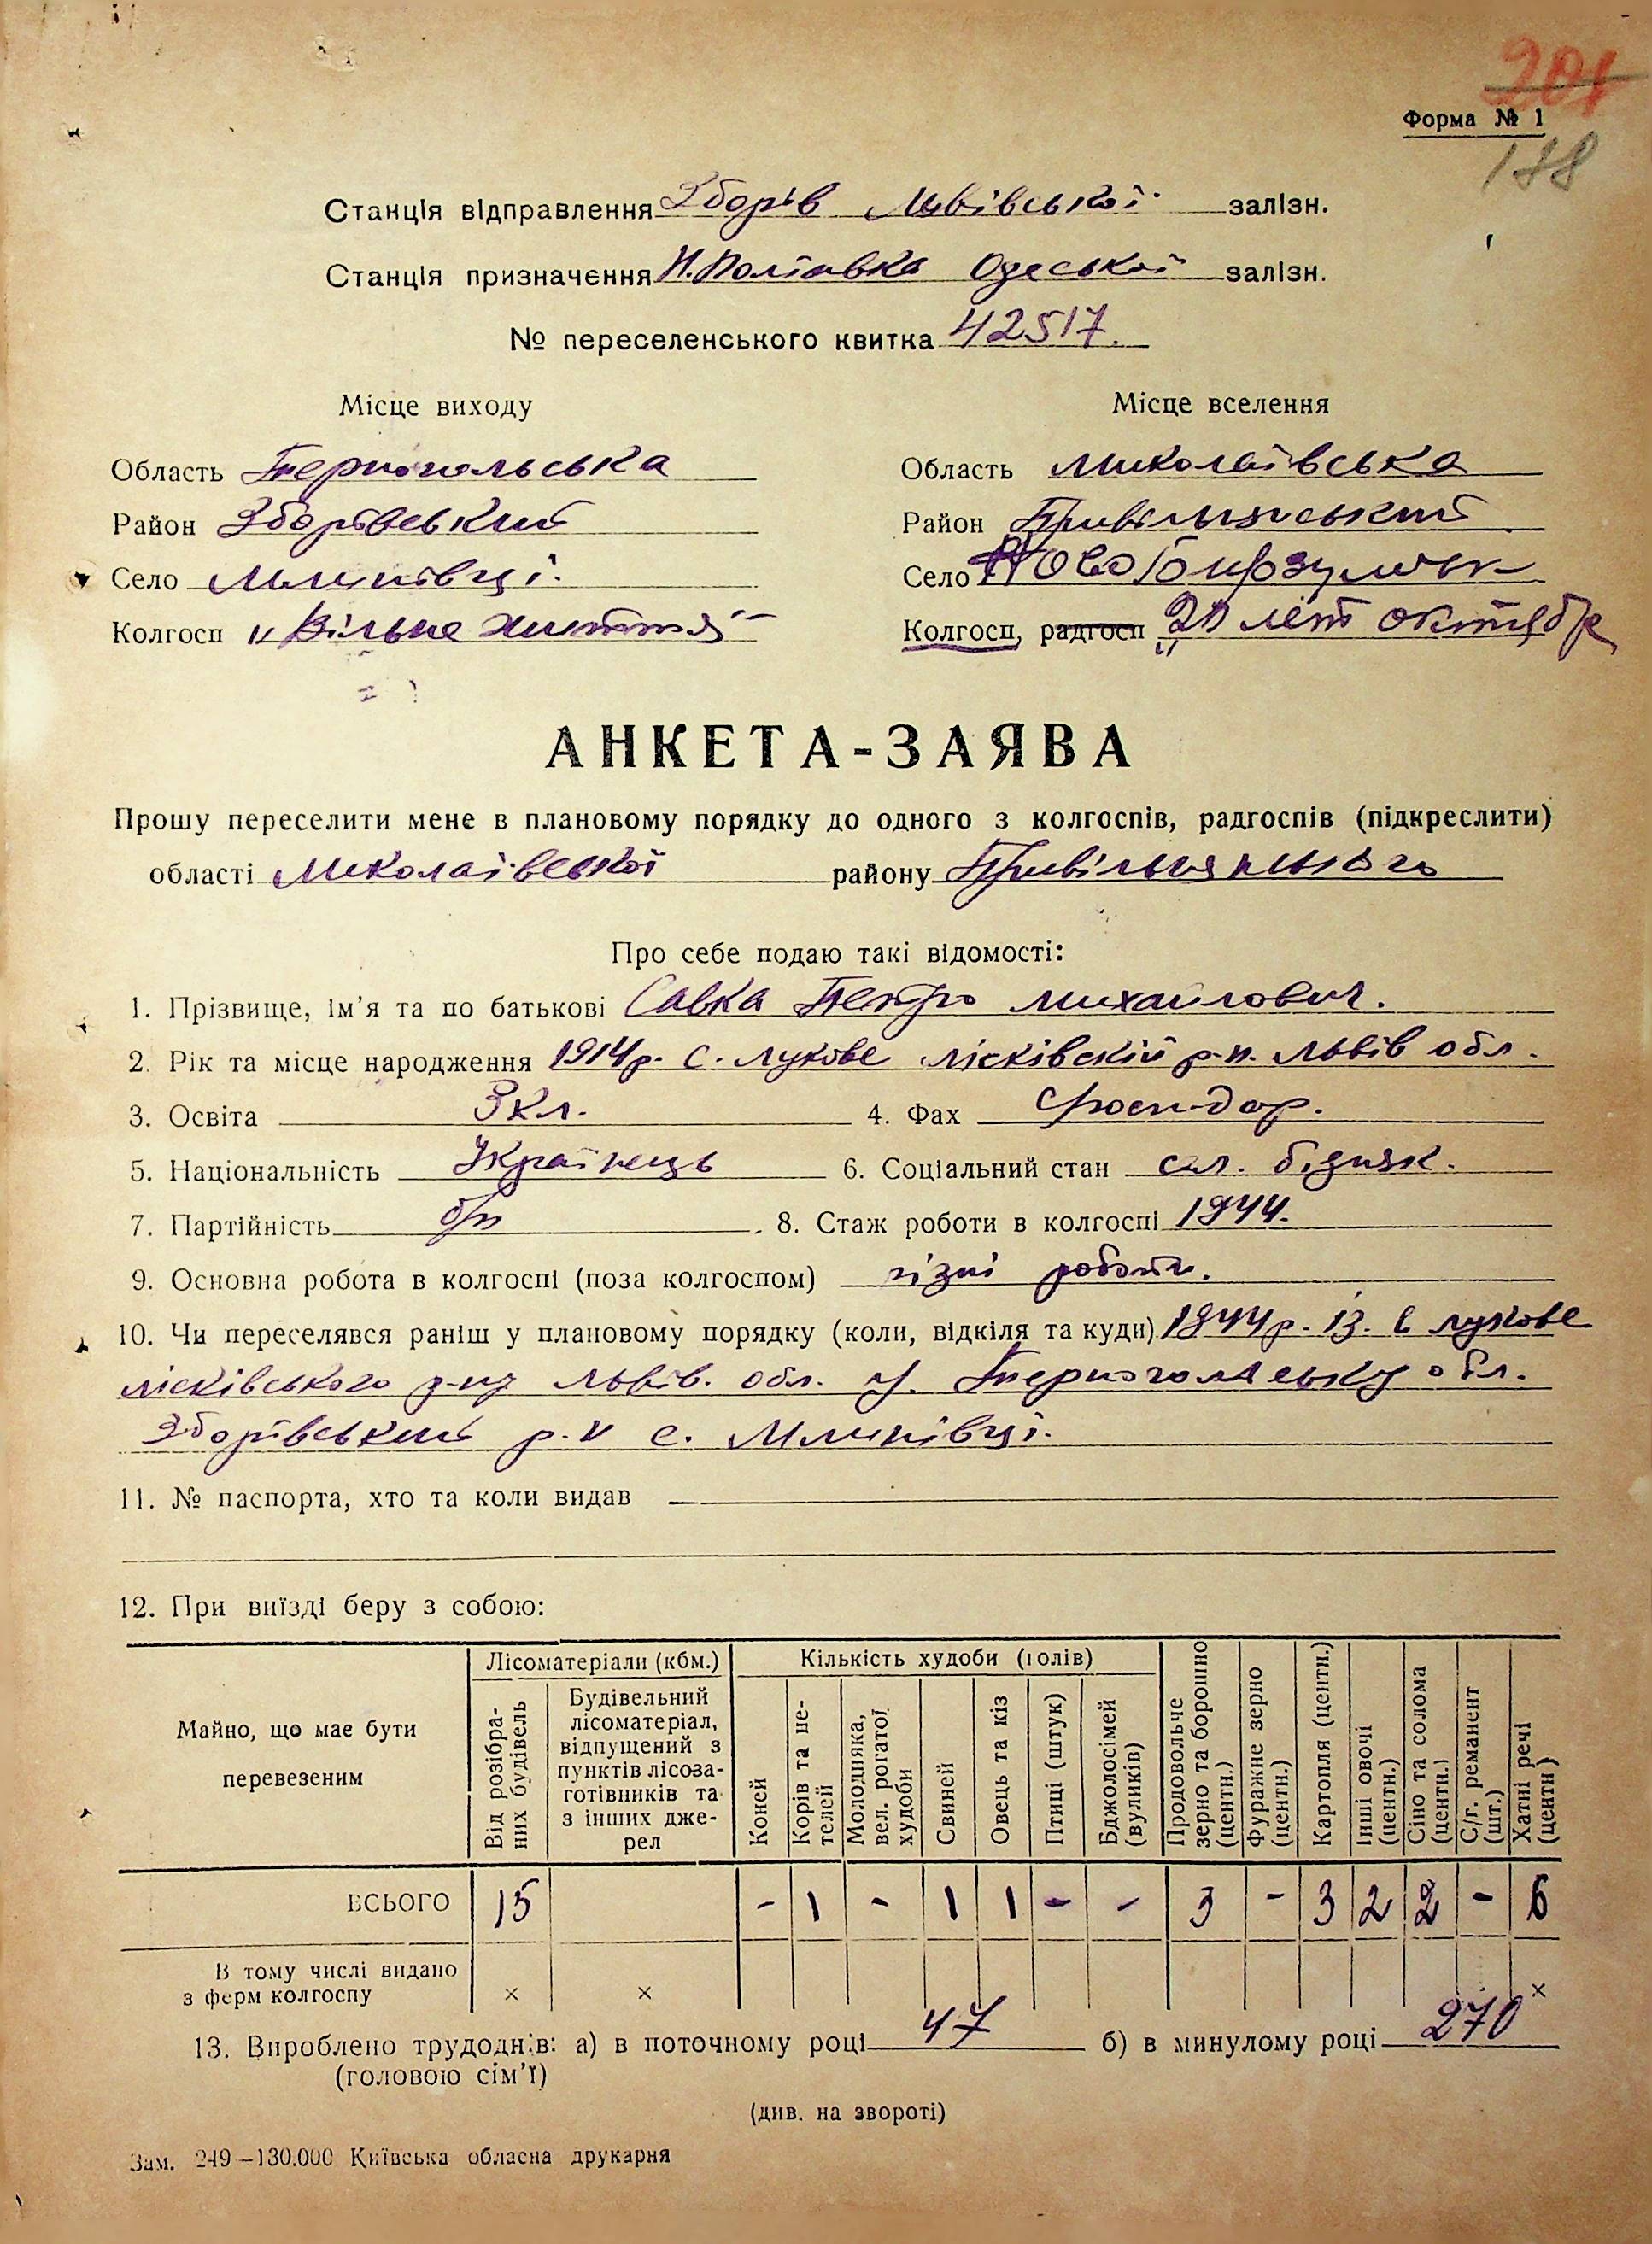 201
Форма № 1
178
Станція відправлення Зборів Львівської залізн.
Станція призначення Н.Полтавка Одеської залізн.
№ переселенського квитка 42517.
Місце виходу Місце вселення
Область Тернопольська Область Миколаївська
Район Зборівський Район Привільнянський
Село Млинівці. Село
Колгосп „Вільне життя" Колгосп, радгосп „20 лет октябр
АНКЕТА-ЗАЯВА
Прошу переселити мене в плановому порядку до одного з колгоспів, радгоспів (підкреслити)
області Миколаївської району Привільнянського
Про себе подаю такі відомості:
1. Прізвище, ім'я та по батькові Савка Петро Михайлович.
2. Рік та місце народження 1914р. с. Лукове Лісківскій р-н. Львів обл.
3. Освіта 3 кл. 4. Фах
5. Національність Українець 6. Соціальний стан сел. бідняк.
7. Партійність б/п 8. Стаж роботи в колгоспі 1944.
9. Основна робота в колгоспі (поза колгоспом) різні роботи.
10. Чи переселявся раніш у плановому порядку (коли, відкіля та куди) 1944р. із. с Лукове
Лісківського р-ну Львів. обл. у. обл.
Зборівський р-н с. Млинівці.
11. № паспорта, хто та коли видав
12. При виїзді беру з собою:
Майно, що має бути перевезеним
Лісоматеріали (кбм.) Кількість худоби (голів)
Від розібраних будівель
Будівельний лісоматеріал, відпущений з пунктів лісозаготівників та з інших джерел
Коней
Корів та нетелей
Молодняка, вел. рогатої худоби
Свиней
Овець та кіз
Птиці (штук)
Бджолосімей (вуликів)
Продовольче зерно та борошно (центн.)
Фуражне зерно (центн.)
Картопля (центн.)
Інші овочі (центн.)
Сіно та солома (центн.)
С/г. реманент (шт.)
Хатні речі (центн)
ВСЬОГО 15 - 1 - 1 1 - - 3 - 3 2 2 - 6
В тому числі видано
з ферм колгоспу × × ×
13. Вироблено трудоднів: а) в поточному році 47 б) в минулому році 270
(головою сім'ї)
(див. на звороті)
Зам. 249—130.000 Київська обласна друкарня